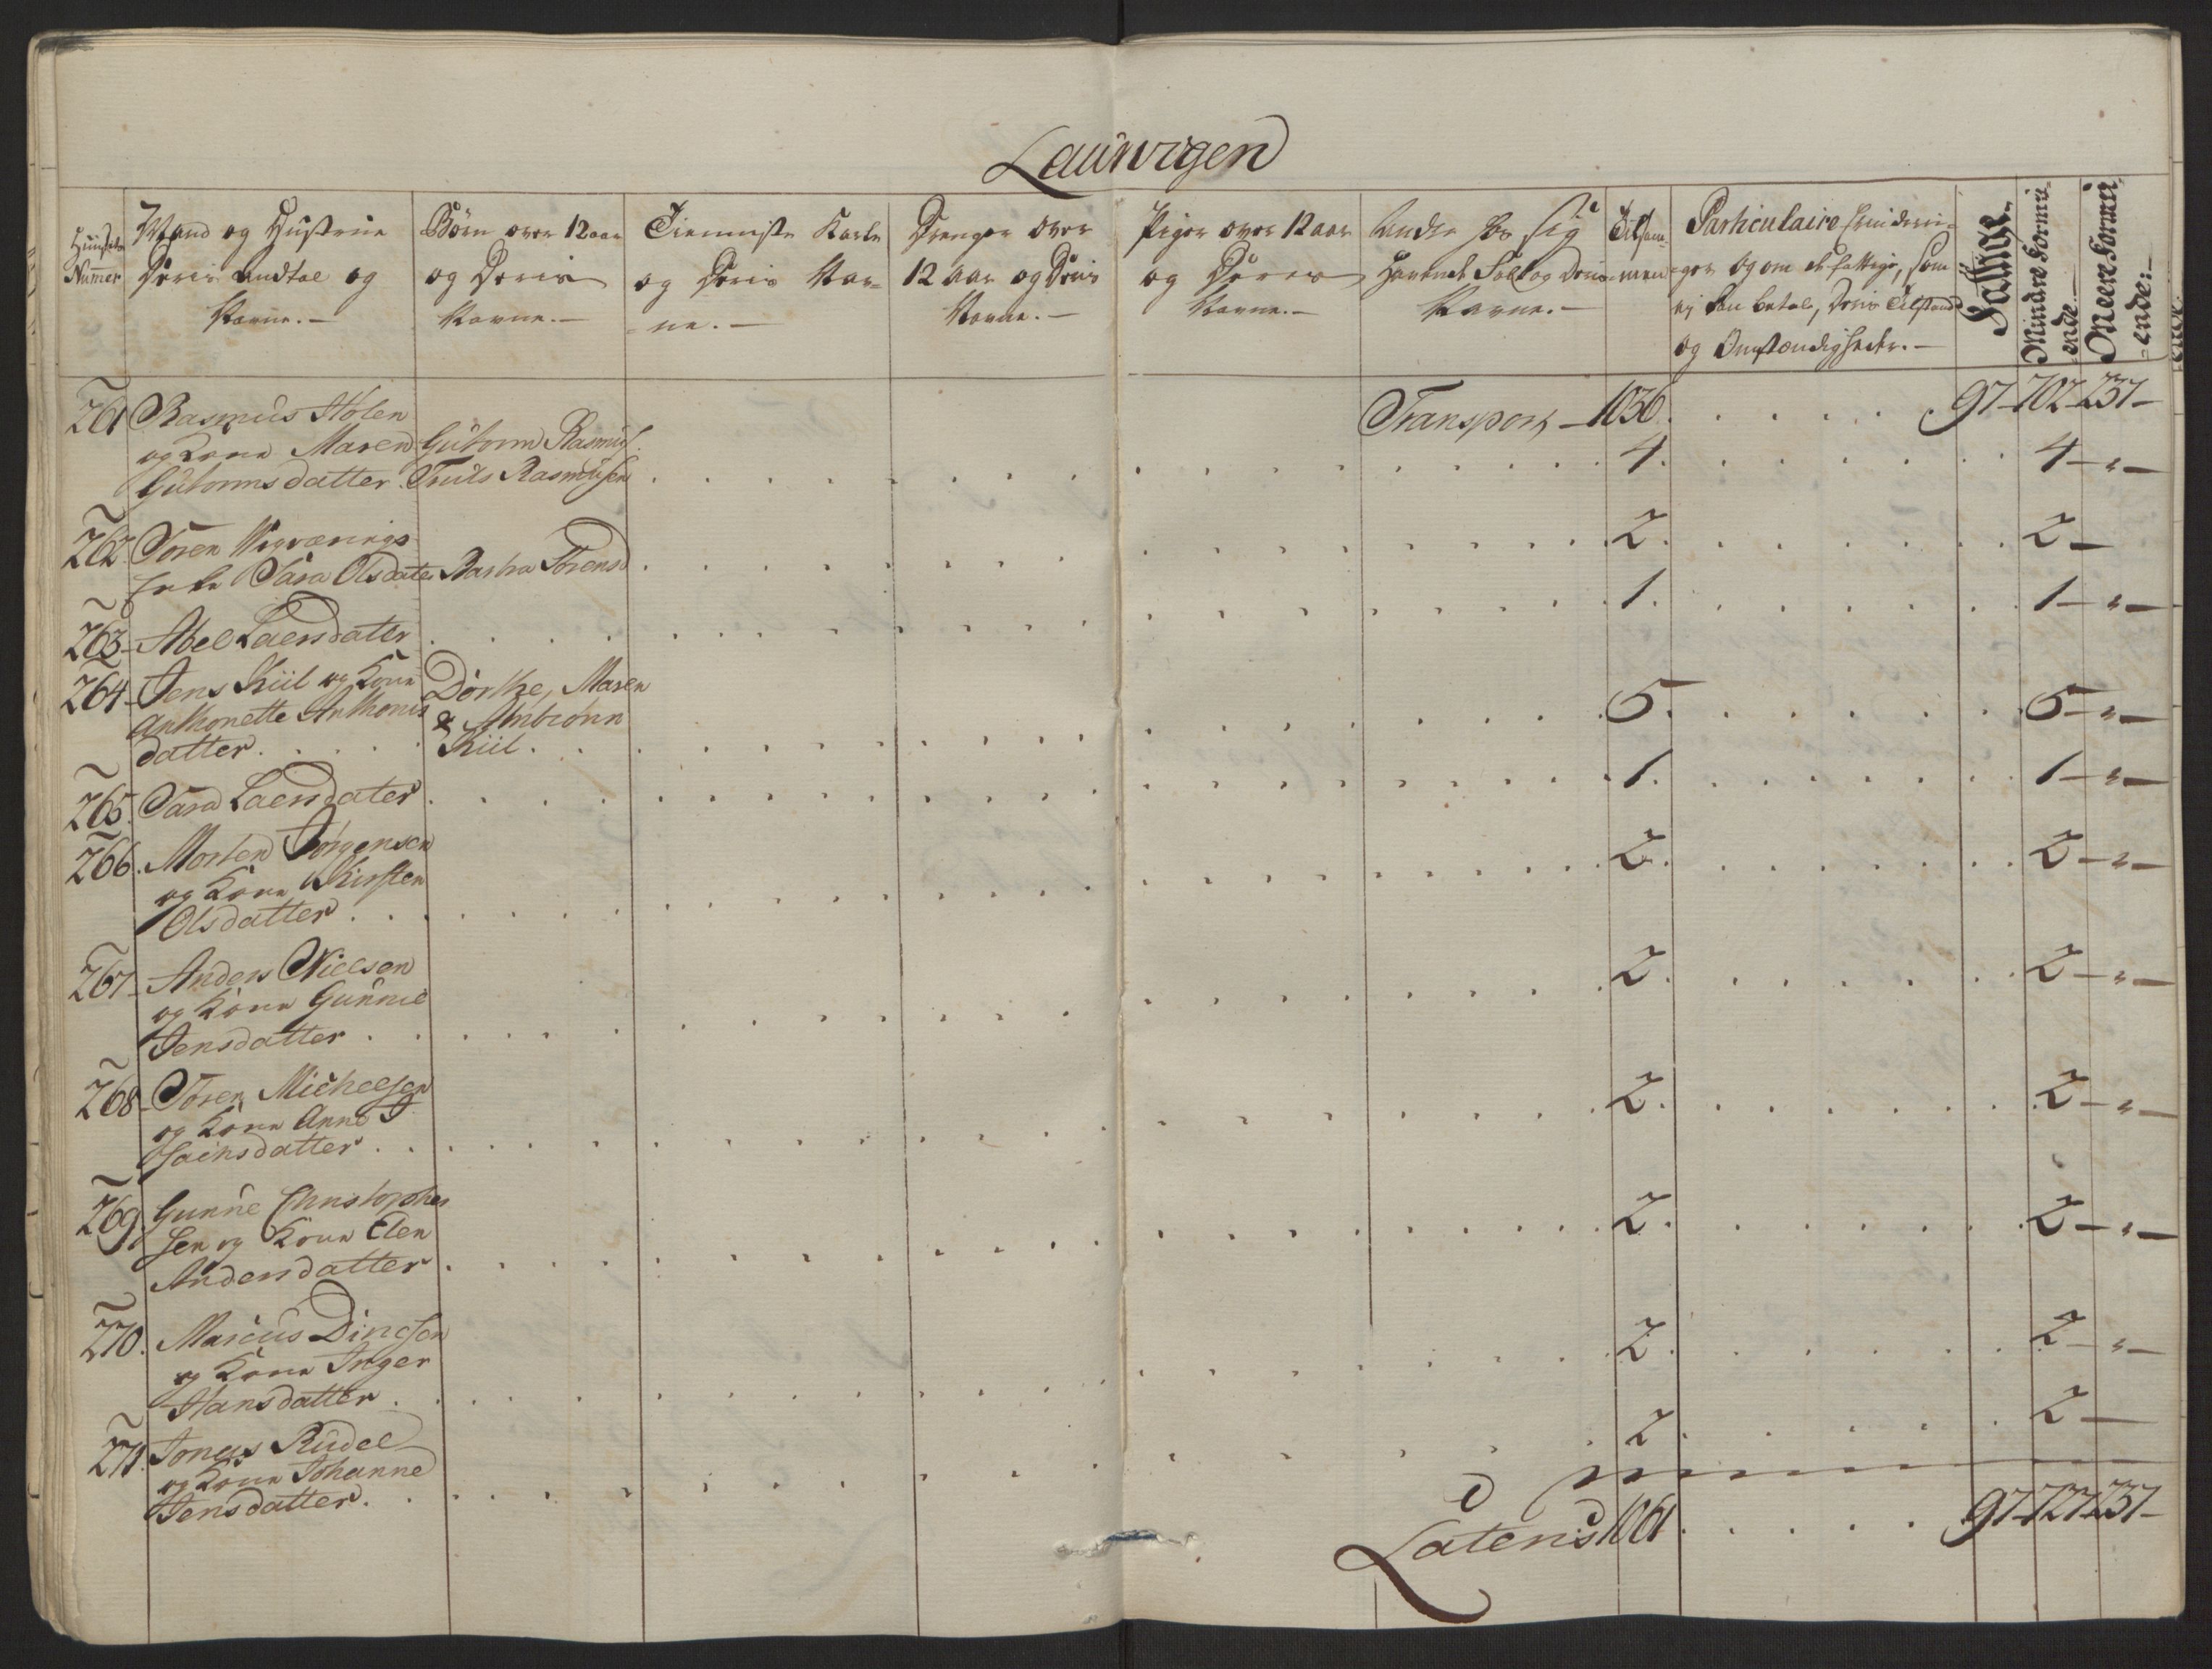 Laurvigen
Huusets Numer
Mand og Hustrue
Deris Andtal og
Navne.-
Børn over 12 aar
og Deris
Navne.-
Tienniste Karle
og Deris Nav=
=ne.-
Drenger over
12 aar og Deris
Navne.-
Piger over 12 aar
og Deres
Navne.-
Andre for sig
Havende Folk og Deris
Navne.-
Tilsam-
men
Particulaire
=ger og om de fattige, som
ej kan betale, Deris Tilstand
og Omstændigheder.-
Fattige.
Mindre Formu-
ende.-
Meere Formu-
=ende:-
Transport - 1036. 97 - 702 - 237 -
261 Rasmus Holen
og Kone Maren Gutorm Rasmus.
Gutormsdatter. Truls Rasmusen 4. 4 - " -
262. Søren
Enke Sara Olsdater Bartra Sørensd 2. 2 -
263 - Abel Laersdater 1. 1 - " -
264 - Jens Kiil og Kone Dorthe, Maren
Anthonette Anthonis & Ambrønn
datter. Kiil. 5. 5 - " -
265. Sara Laersdater 1. 1 - " -
266. Morten Jørgensen
og Kone Kirsten
Olsdatter. 2. 2 - " -
267 - Anders Nielsen
og Kone Gunnil
Jensdatter 2. 2 - " -
268 - Søren Michelsen
og Kone Anne
datter. 2. 2 - " -
269. Gunne Christopher
sen og Kone Elen
Andersdatter 2. 2 - " -
270. Marcus Dingsen
og Kone Inger
Hansdatter. 2. 2 - " -
271. Jonas Rudel
og Kone Johanne
Jensdatter. 2. 2 -
Lateris 1061 97 - 727 - 237 -